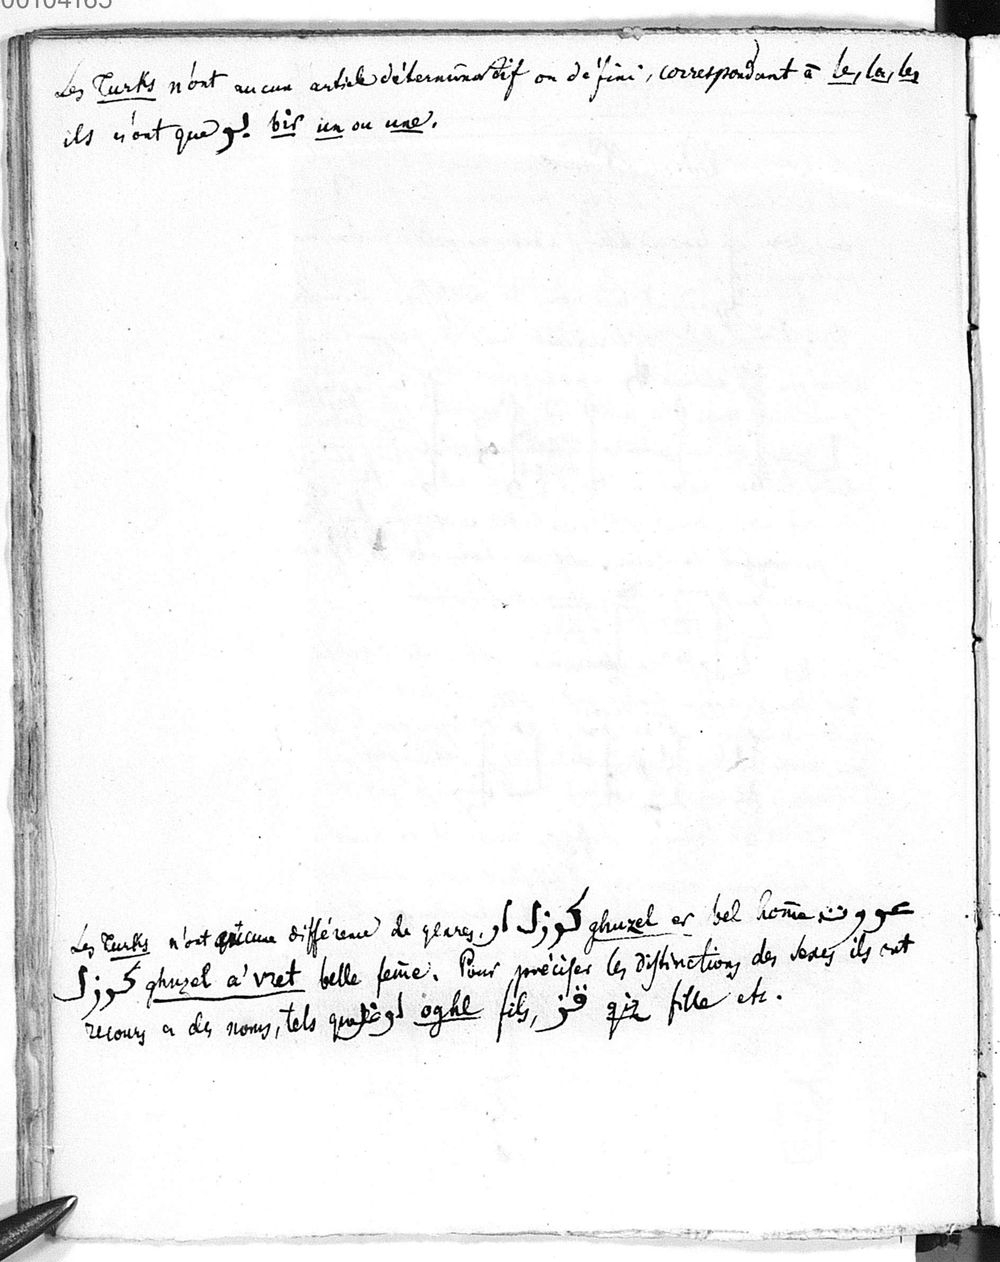 00104165
Les Turks n'ont aucun article déterminatif ou défini, correspondant à le, la, les
ils n'ont que بر bir un ou une.
Les Turks n'ont aucune différence de genres. كوزل ار ghuzel er bel hom̄e عورت
كوزل ghuzel a'vret belle fem̄e. Pour préciser les distinctions des sexes ils ont
recours à des noms, tels que اوغل oghl fils, قز qiz fille etc.